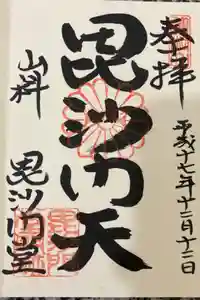 奉拝
平成十七年十二月十二日
毘沙門天
山科
毘沙門堂